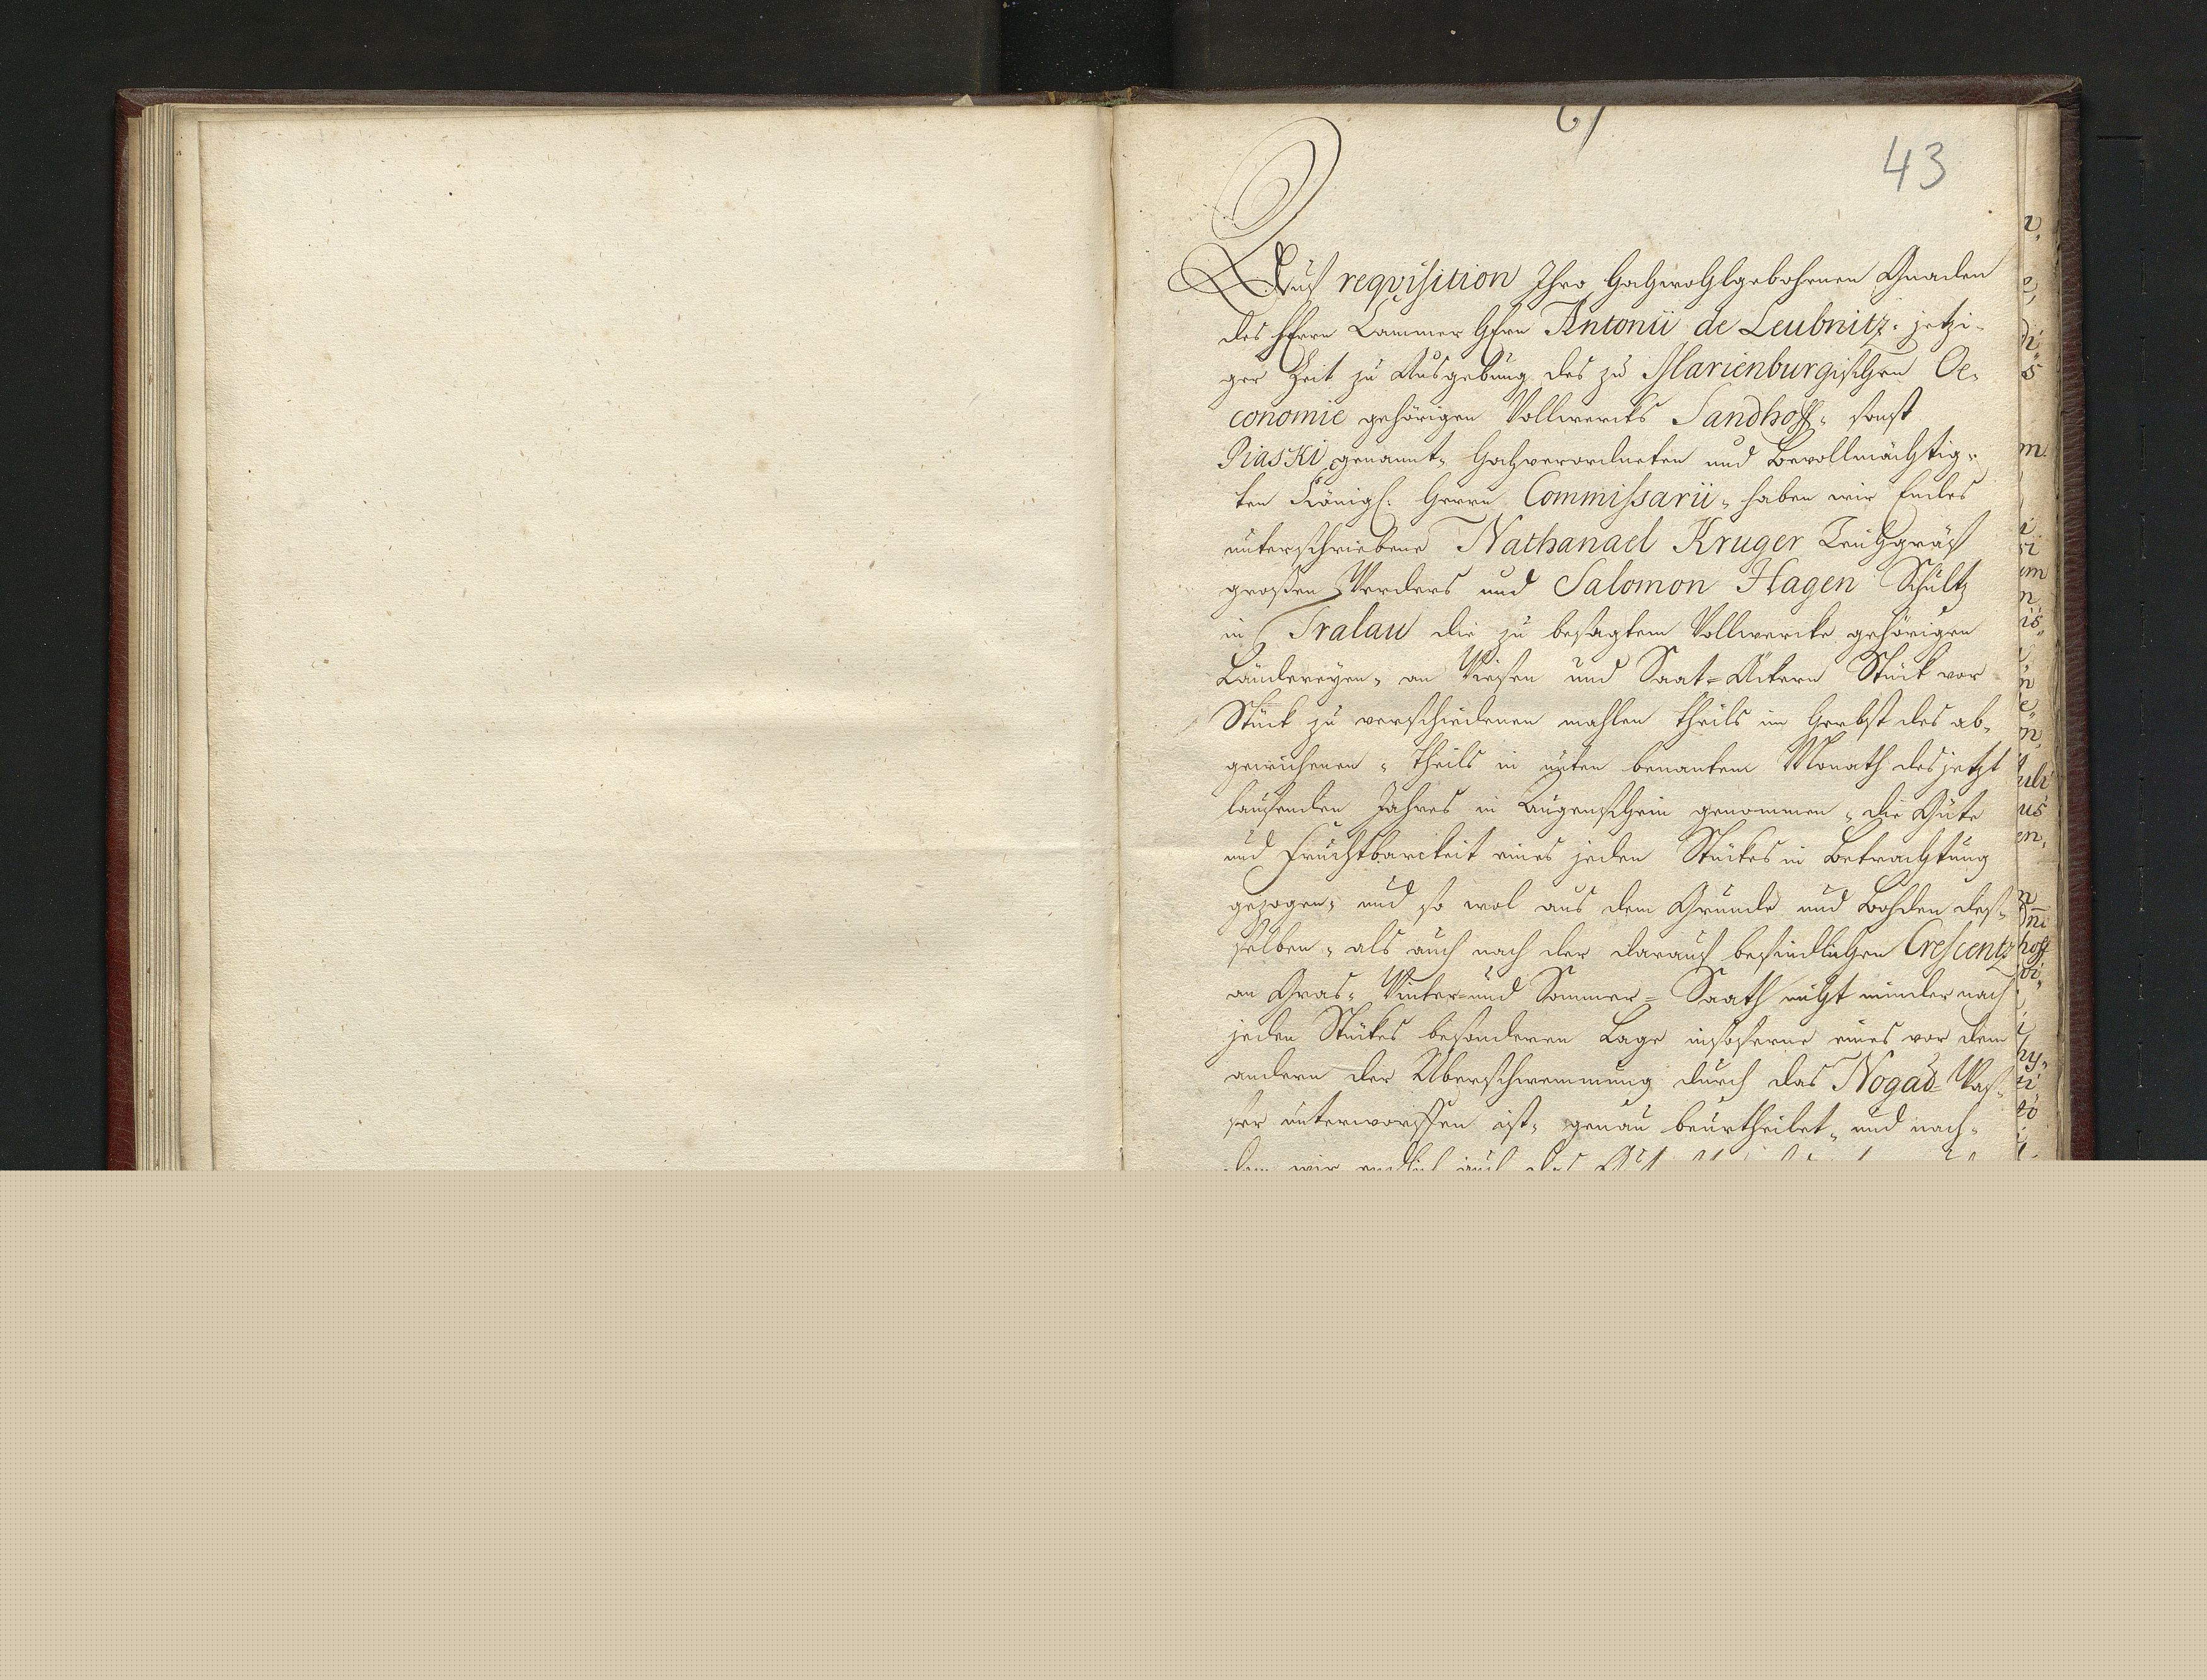 43
Auf requisition Ihro Hochwohlgebohrnen Gnaden
des Herrn Cammer Herrn Antonii de Leubnitz, jetzi-
ger Zeit zu Ausgebung des zu Marienburgischen Oe-
conomie gehörigen Vollwercks Sandhoff, sonst
Piaski genannt, Hochverordneten und Bevollmächtig-
ten Königl: Herrn Commissarii, haben wir Endes
unterschriebene Nathanael Kruger Teichgräf
großen Werders und Salomon Hagen Schultz
in Tralau die zu besagtem Vollwercke gehörigen
Ländereyen, an Wiesen und Saat-Äckern Stück vor
Stück zu verschiedenen mahlen theils im Herbst des ab-
gewichenen, theils in unten benantem Monath des jetzt
laufenden Jahres in Augenschein genommen, die Güte
und Fruchtbarckeit eines jeden Stückes in Betrachtung
gezogen, und so wol aus dem Grunde und Bohden des-
selben, als auch nach der darauf befindlichen Crescentz
an Gras, Winter- und Sommer-Saath nicht minder nach
jeden Stückes besonderen Lage insoferne eines vor dem
andern der Überschwemmung durch das Nogad-Was-
ser unterworffen ist, genau beurtheilet, und nach-